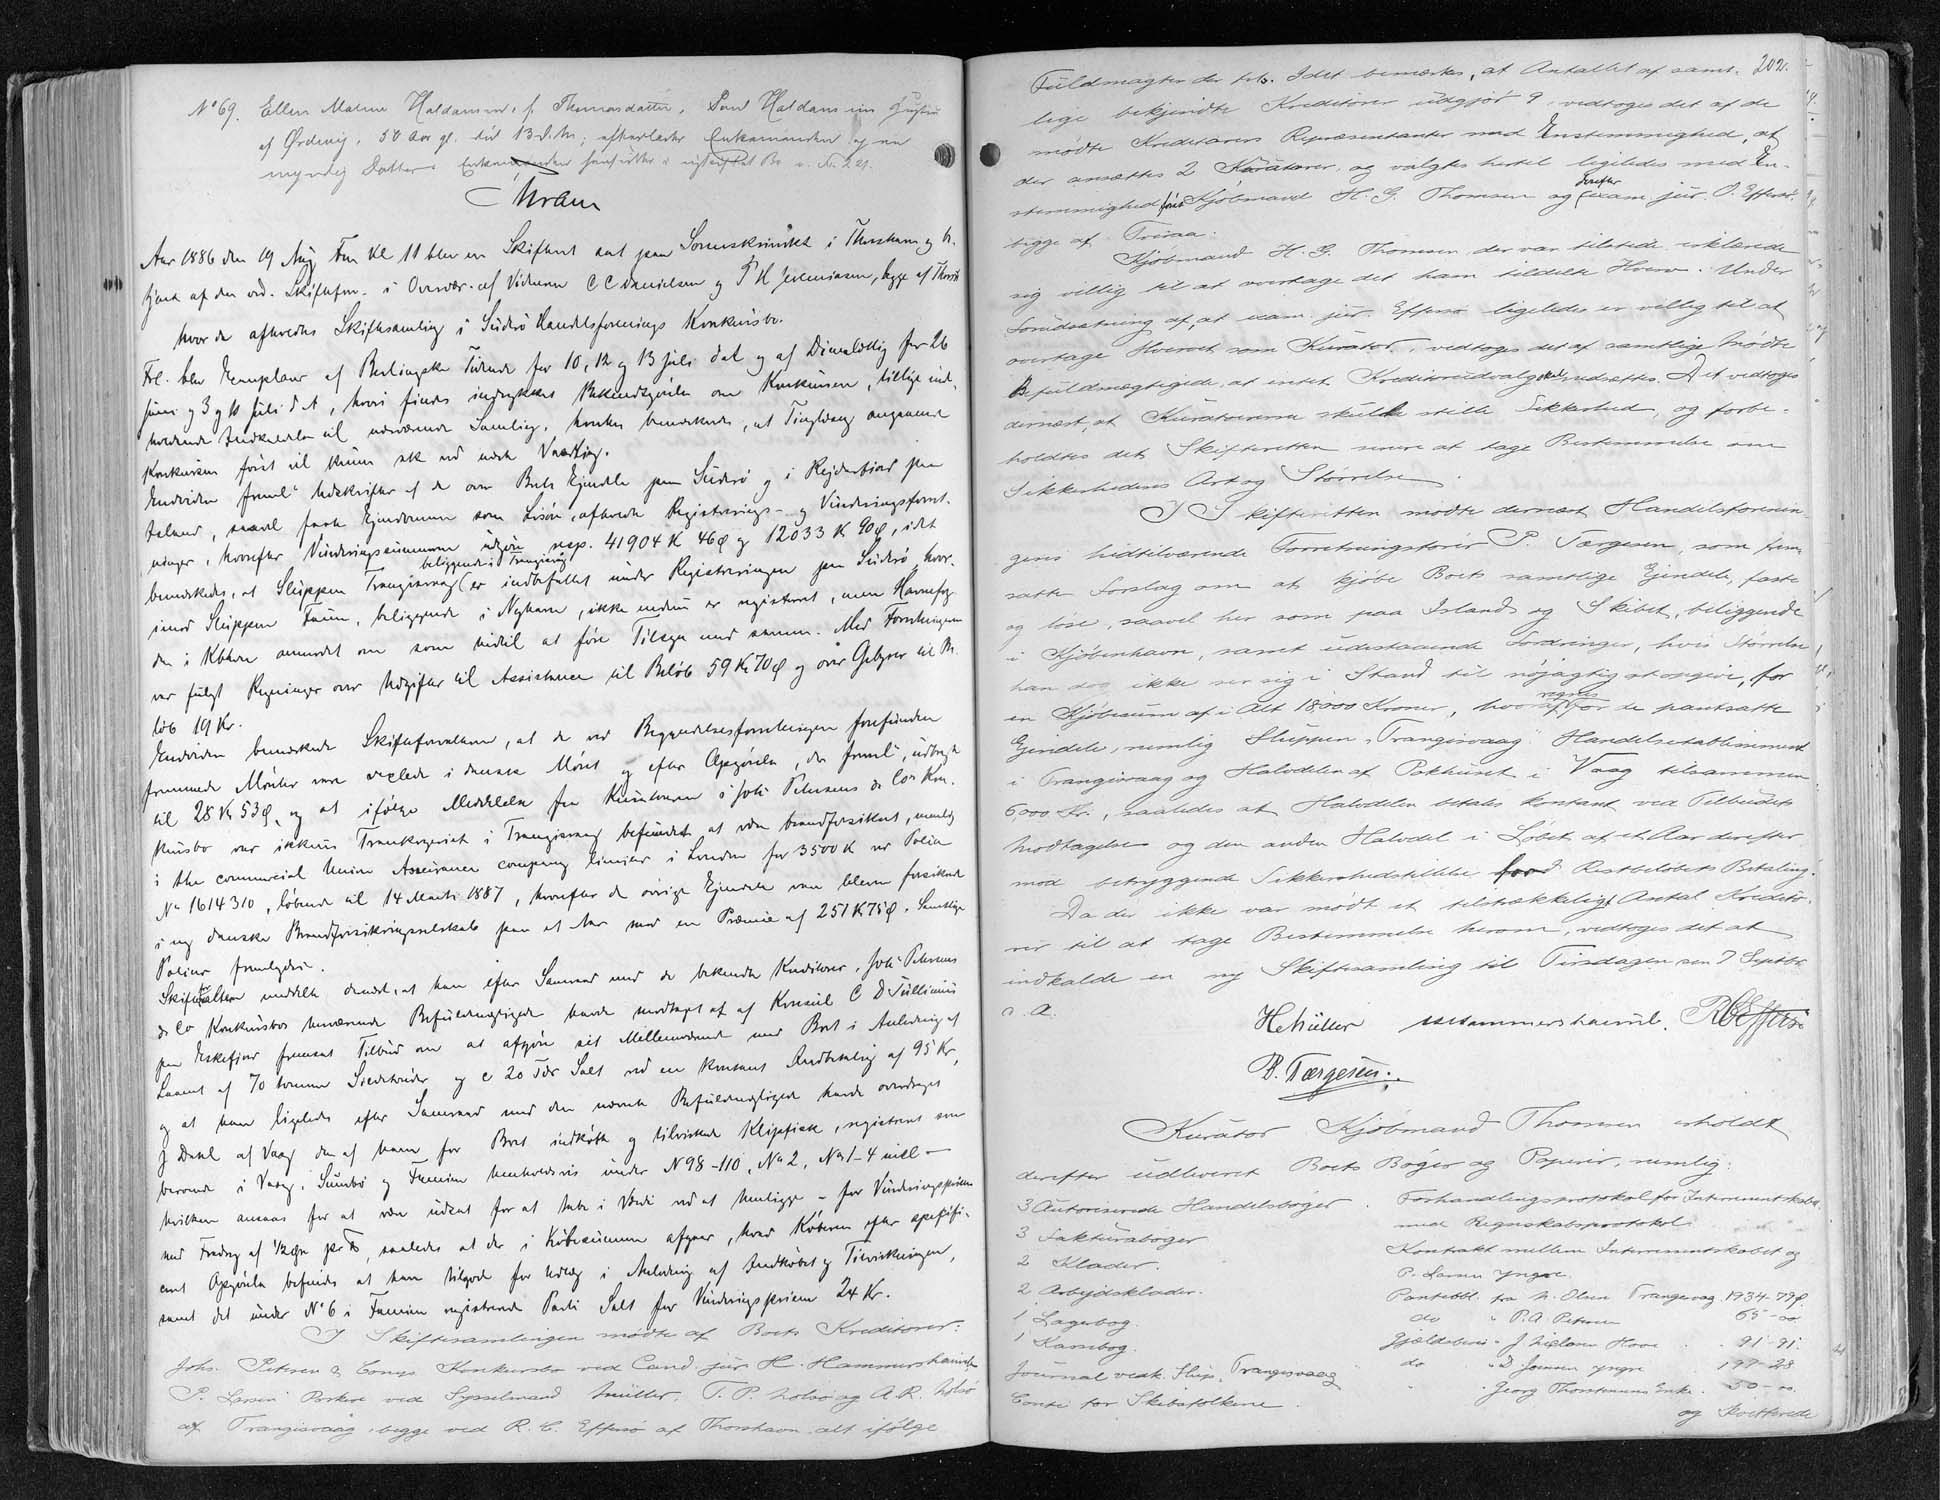 No 69. Ellen Malene Haldansen, f. Thomasdatter, Poul Haldansens Hustru
af Ørdevig, 50 Aar gl. død 13 d. M.; efterlader Enkemanden og en
myndig Datter. Enkemanden hensidder i uskiftet Bo
Aar 1886 den 19 Aug Fm Kl 11 blev en Skifteret sat paa Sorenskriveriet i Thorshavn og be-
tjent af den ord. Skifteforv. i Overvær. af Vidnerne C C Danielsen og P H Jeremiasen, begge af Thorsh
hvor da afholdtes Skiftesamling i Suderø Handelsforenings Konkursbo.
Frl. blev Exemplarer af Berlingske Tidende for 10, 12 og 13 Juli d A og af Dimmalætting for 26
Juni og 3 og 10 Juli d A, hvori findes indrykket Bekjendtgjørelse om Konkursen, tillige inde-
holdende Indkaldelse til nærværende Samling, hvorhos bemærkedes, at Tinglæsning angaaende
Konkursen først vil kunne ske ved næste Vaarting.
Endvidere freml. Udskrifter af de over Boets Ejendele paa Suderø og i Rejdarfjord paa
Island, saavel faste Ejendomme som Løsøre, afholdte Registrerings- og Vurderingsforret-
ninger, hvorefter Vurderingssummerne udgjøre resp. 41904 K 46 Ø og 12033 K 90 Ø, idet
beliggende i Trangisvaag
bemærkedes, at Sluppen Trangisvaag er indbefattet under Registreringen paa Suderø, hvor-
imod Sluppen Faun, beliggende i Nyhavn, ikke endnu er registreret, men Havnefog-
den i Kbhvn anmodet om som hidtil at føre Tilsyn med samme. Med Forretningerne
var fulgt Regninger over Udgifter til Assistance til Beløb 59 Kr 70 Ø og over Gebyrer til Be-
løb 19 Kr.
Endvidere bemærkede Skifteforvalteren, at de ved Begyndelsesforretningen forefundne
fremmede Mønter vare vexlede i dansk Mønt og efter Opgjørelse, der freml., udbragt
til 28 Kr 53 Ø, og at ifølge Meddelelse fra Kuratorerne i Johs Petersens & Cos Kon-
kursbo var ikkuns Trankogeriet i Trangisvaag befundet at være brandforsikret, nemlig
i the commercial Union Assurance company limited i London for 3500 K ved Police
No 1614310, løbende til 14 Marts 1887, hvorefter de øvrige Ejendele vare blevne forsikrede
i ny danske Brandforsikringsselskab paa et Aar med en Præmie af 251 K 75 Ø. Samtlige
Policer fremlagdes.
Skifteforvalteren meddelte dernæst, at han efter Samraad med de bekjendte Kreditorer, Johs Petersens
& Co Konkursbos herværende Befuldmægtigede havde modtaget af af Konsul C D Tullinius
paa Eskefjord fremsat Tilbud om at afgjøre sit Mellemværende med Boet i Anledning af
Laanet af 70 tomme Sildetønder og c 20 Tdr Salt ved en kontant Indbetaling af 95 Kr,
og at han ligeledes efter Samraad med den nævnte Befuldmægtigede havde overdraget
J Dahl af Vaag den af ham for Boet indkøbte og tilvirkede Klipfisk, registreret som
beroende i Vaag, Sumbø og Famien henholdsvis under No 98-110, No 2, No 1-4 incl -
hvilken ansaas for at være udsat for at tabe i Værdi ved at henligge - for Vurderingsprisen
med Fradrag af 1/2 Øre pr ℔, saaledes at der i Købesummen afgaar, hvad Køberen efter specifi-
ceret Opgjørelse befindes at have tilgode for Udlæg i Anledning af Indkøbet og Tilvirkningen,
samt det under No 6 i Famien registrerede Parti Salt for Vurderingsprisen 24 Kr.
I Skiftesamlingen mødte af Boets Kreditorer:
Johs. Petersen & Comp. Konkursbo ved Cand. jur H. Hammershaimb
P. Larsen Porkere ved Sysselmand Müller, T. P. Holsø og A. R. Holsø
af Trangisvaag, begge ved R. C. Effersø af Thorshavn alt ifølge
202.
Fuldmagter der frls. Idet bemærkes, at Antallet af samt-
lige bekjendte Kreditorer udgjør 9, vedtoges det af de
mødte Kreditorers Repræsentanter med Enstemmighed, at
der ansættes 2 Kuratorer, og valgtes hertil ligeledes med En-
derefter
stemmighed først Kjøbmand H. G. Thomsen og exam. jur. O. Effersø,
begge af Tveraa.
Kjøbmand H. G. Thomsen der var tilstede erklærede
sig villig til at overtage det ham tildelte Hverv. Under
Forudsætning af, at exam. jur. Effersø ligeledes er villig til at
overtage Hvervet som Kurator, vedtoges det af samtlige mødte
Befuldmægtigede, at intet Kreditorudvalg skal udsættes. Det vedtoges
dernæst, at Kuratorerne skulde stille Sikkerhed, og forbe-
holdtes det Skifteretten senere at tage Bestemmelse om
Sikkerhedens Art og Størrelse.
I Skifteretten mødte dernæst Handelsforenin-
gens hidtilværende Forretningsfører P. Tærgesen, som frem-
satte Forslag om at kjøbe Boets samtlige Ejendele, faste
og løse, saavel her som paa Island og Skibet, beliggende
i Kjøbenhavn, samt udestaaende Fordringer, hvis Størrelse
han dog ikke ser sig i Stand til nøjagtig at opgive, for
regnes
en Kjøbesum af i Alt 18000 Kroner, hvoraf for de pantsatte
Ejendele, nemlig Sluppen "Trangisvaag" Handelsetablissement
i Trangisvaag og Halvdelen af Pakhuset i Vaag tilsammen
6000 Kr., saaledes at Halvdelen betales kontant ved Tilbudets
Modtagelse og den anden Halvdel i Løbet af et Aar derefter
mod betryggende Sikkerhedstillelse for Restbeløbets Betaling.
Da der ikke var mødt et tilstrækkeligt Antal Kredito-
rer til at tage Bestemmelse herom, vedtoges det at
indkalde en ny Skiftesamling til Tirsdagen den 7 Septbr.
d. A.
H Müller HHammershaimb. RCEffersø
P. Tærgesen.
Kurator Kjøbmand Thomsen erholdt
derefter udleveret Boets Bøger og Papirer, nemlig:
3 Autoriserede Handelsbøger
3 Fakturabøger
2 Klader.
2 Arbejdsklader.
1 Lagerbog.
1 Kassebog.
Journal vedk. Slup. Trangisvaag
Conti for Skibsfolkene
Forhandlingsprotokol for Interessentskabet
med Regnskabsprotokol
Kontrakt mellem Interessentskabet og
P. Larsen yngre.
Panteobl. fra N. Olsen Trangisvaag 1934-79 Ø.
do " P. A. Petersen 65-00
Gjældsbevis " J. Nielsen Hove 91-91.
do " D. Joensen yngre 197-28
" Georg Thomsens Enke 50-00.
og Kvitterede